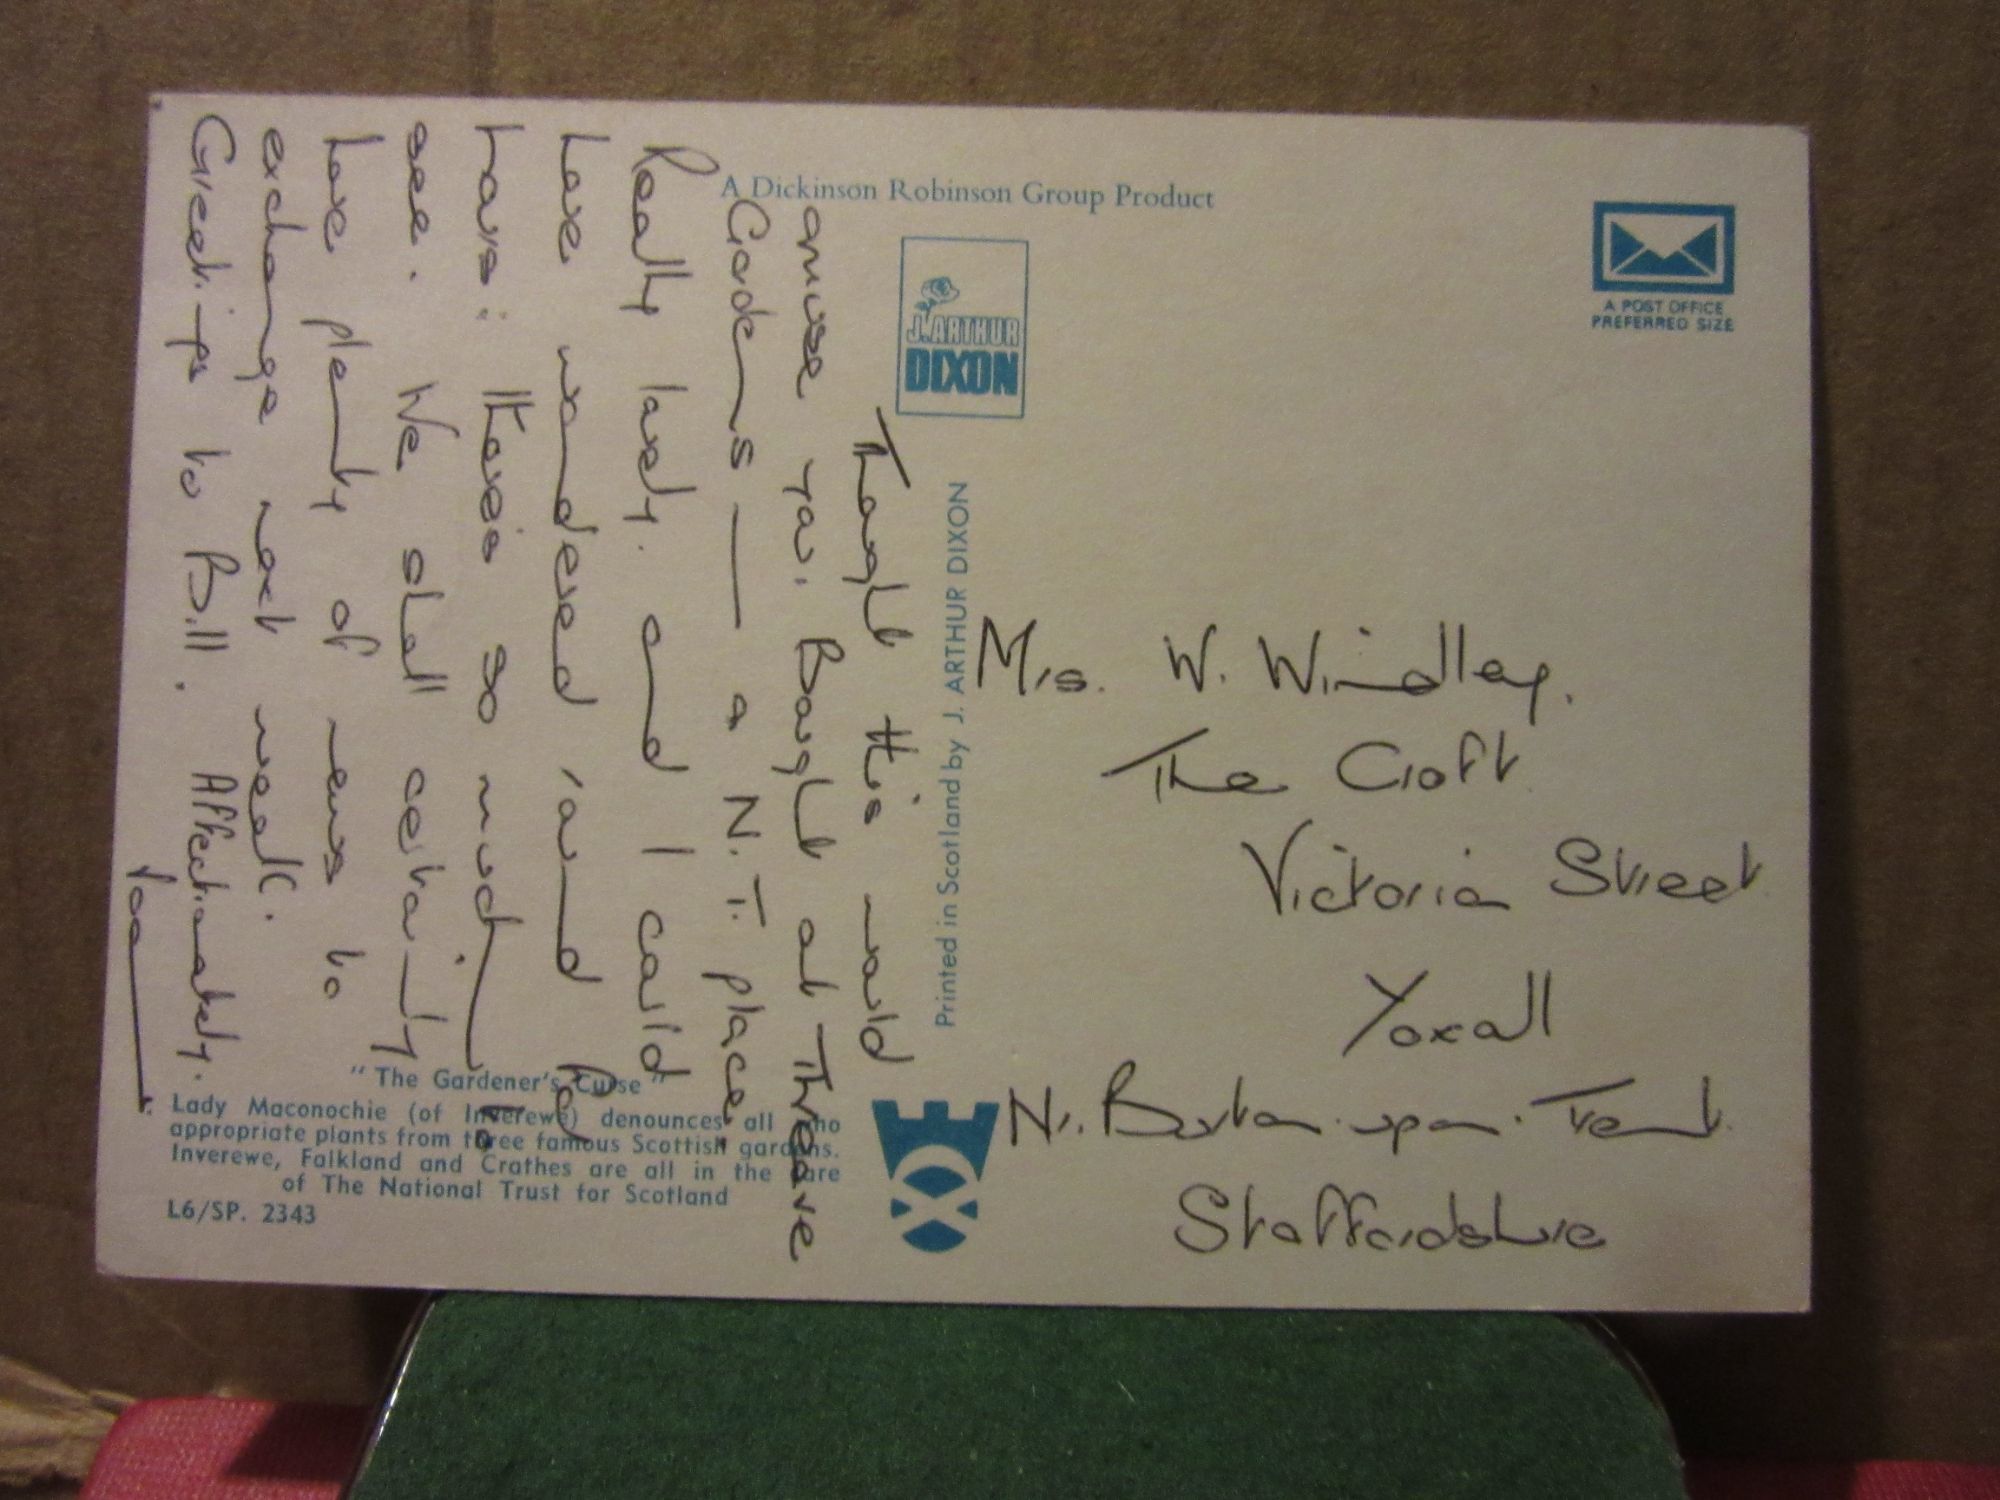 A Dickinson Robinson Group Product
J. ARTHUR
DIXON
A POST OFFICE
PREFERRED SIZE
Printed in Scotland by J. ARTHUR DIXON
Thought this would
amuse you. Bought at Threave
Gardens — a N.T. place
Really lovely. and I could
have wandered round for
hours: there is so much to
see. We shall certainly
have plenty of news to
exchange next week.
Greetings to Bill. Affectionately.
Mrs. W. Windley.
The Croft
Victoria Street
Yoxall
Nr. Burton-upon-Trent
Staffordshire
"The Gardener's Curse"
Lady Maconochie (of Inverewe) denounces all who
appropriate plants from three famous Scottish gardens.
Inverewe, Falkland and Crathes are all in the care
of The National Trust for Scotland
L6/SP. 2343